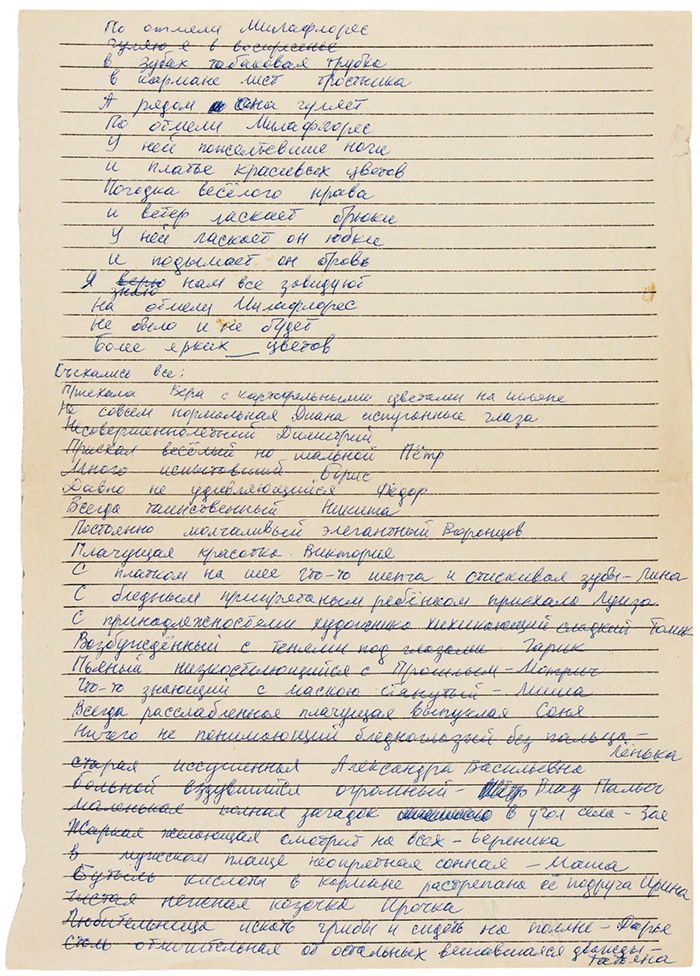 По отмели Милафлорес
Гуляю я в воскресенье
В зубах табаковая трубка
В кармане лист тростника
А рядом она гуляет
По отмели Милафлорес
У ней пожелтевшие ноги
И платье красивых цветов
Погодка весёлого нрава
И ветер ласкает брюки
У ней ласкает он юбки
И подымает он бровь
Я верю нам все завидуют
знаю
На отмели Милафлорес
Не было и не будет
Более ярких __ цветов
Съехались все:
Приехала Вера с картофельными цветами на шляпе
Не совсем нормальная Диана испуганные глаза
Несовершеннолетний Димитрий
Приехал весёлый но шальной Пётр
Много испытавший Борис
Давно не удивляющийся Фёдор
Всегда таинственный Никита
Постоянно молчаливый элегантный Воронцов
Плачущая красотка Виктория
С платком на шее что-то шепча и стискивая зубы – Лина
С бледным припрятаным ребёнком приехала Луиза
С принадлежностями художника хихикающий сладкий Толик
Возбуждённый с тенями под глазами Гарик
Пьяный низкостелющийся с Прошлым – Мотрич
Что-то знающий с маскою стянутый – Миша
Всегда расслабленная плачущая выпуклая Соня
Ничего не понимающий бледноглазый без пальца –
Лёнька
старая иссушенная Александра Васильевна
больной вздувшийся огромный – Пал Палыч
Маленькая полная загадок в угол села – Зая
Жаркая желающая смотрит на всех – Вероника
В мужском плаще неопрятная сонная – Маша
Бутыль кислоты в кармане растрепана её подруга Ирина
Чистая нежная козочка Ирочка
Любительница искать грибы и сидеть на поляне – Дарья
столь отличительная от остальных вешавшаяся дважды –
Татьяна